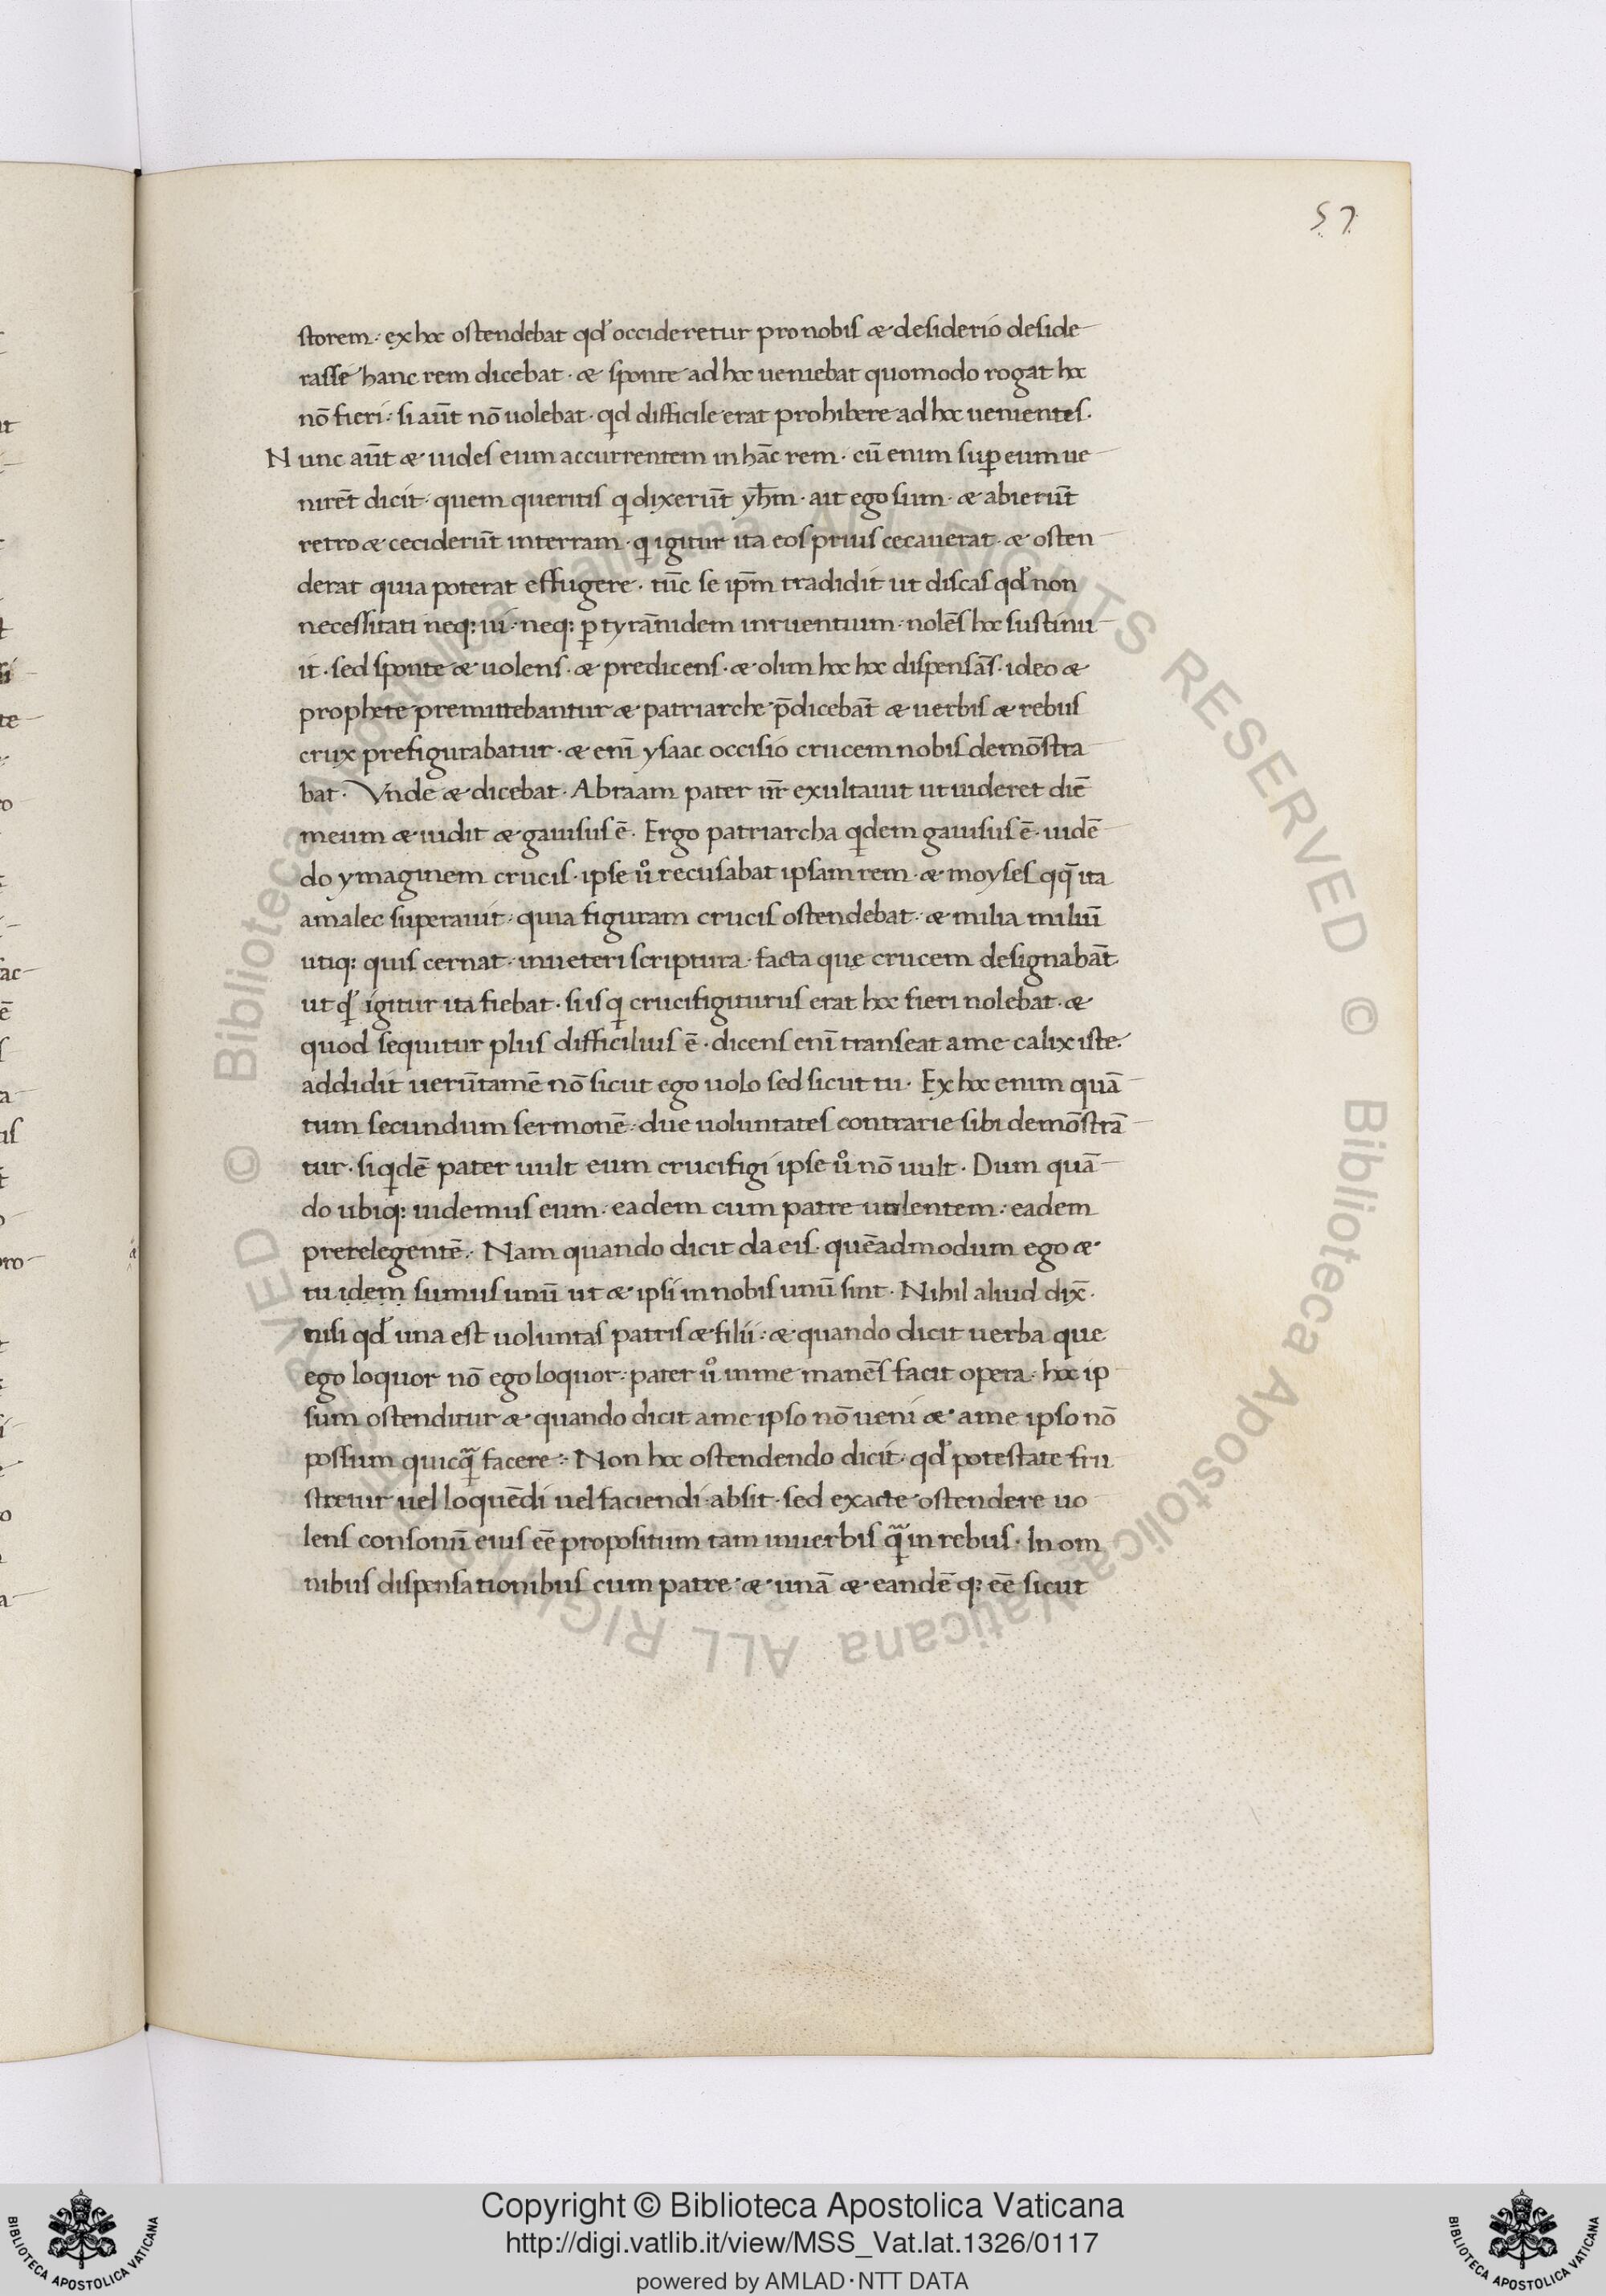 57
storem· ex hoc ostendebat qd' occideretur pro nobis & desiderio deside
rasse hanc rem dicebat· & sponte ad hoc ueniebat quomodo rogat hoc
nō fieri· si aūt nō uolebat· qd difficile erat prohibere ad hoc uenientes·
Nunc aūt & uides eum accurrentem in hāc rem· cū enim sup eum ue
nirēt dicit· quem queritis q dixerūt yhm̄· ait ego sum· & abierūt
retro & ceciderūt in terram· q igitur ita eos prius cecauerat· & osten
derat quia poterat effugere· tūc se ip̄m tradidit ut discas qd' non
necessitati neq: ui· neq: p tyrānidem inruentium· nolēs hoc sustinu
it· sed sponte & uolens· & predicens· & olim hoc hoc dispensās· ideo &
prophete premittebantur & patriarche p̄dicebāt & uerbis & rebus
crux prefigurabatur· & enī ysaac occisio crucem nobis demōstra
bat· Vnde & dicebat· Abraam pater nr̄ exultauit ut uideret diē
meum & uidit & gauisus ē· Ergo patriarcha qdem gauisus ē· uidē
do ymaginem crucis· ipse uº recusabat ipsam rem· & moyses qq̄ ita
amalec superauit· quia figuram crucis ostendebat· & milia miliū
utiq: quis cernat· in ueteri scriptura· facta que crucem designabāt·
ut qd' igitur ita fiebat· si is q crucifigiturus erat hoc fieri nolebat· &
quod sequitur plus difficilius ē· dicens enī transeat a me calix iste·
addidit uerūtamē nō sicut ego uolo sed sicut tu· Ex hoc enim quā
tum secundum sermonē· due uoluntates contrarie sibi demōstrā
tur· siqdē pater uult eum crucifigi ipse uº nō uult· Dum quā
do ubiq: uidemus eum· eadem cum patre uolentem· eadem
pretelegentē· Nam quando dicit da eis· quēadmodum ego &
tu idem sumus unū ut & ipsi in nobis unū sint· Nihil aliud dix̄·
nisi qd' una est uoluntas patris & filii· & quando dicit uerba que
ego loquor nō ego loquor· pater uº in me manēs facit opera· hoc ip
sum ostenditur & quando dicit a me ipso nō ueni & a me ipso nō
possum quicq̄ facere· Non hoc ostendendo dicit· qd' potestate fru
stretur uel loquēdi uel faciendi· absit· sed exacte ostendere uo
lens consonū eius eē propositum tam in uerbis q̄ in rebus· In om
nibus dispensationibus cum patre & unā & eandē q: eē sicut
© Biblioteca Apostolica Vaticana ALL RIGHTS RESERVED © Biblioteca Apostolica Vaticana ALL RIGHTS RESERVED
Copyright © Biblioteca Apostolica Vaticana
http://digi.vatlib.it/view/MSS_Vat.lat.1326/0117
powered by AMLAD·NTT DATA
BIBLIOTECA APOSTOLICA VATICANA
BIBLIOTECA APOSTOLICA VATICANA